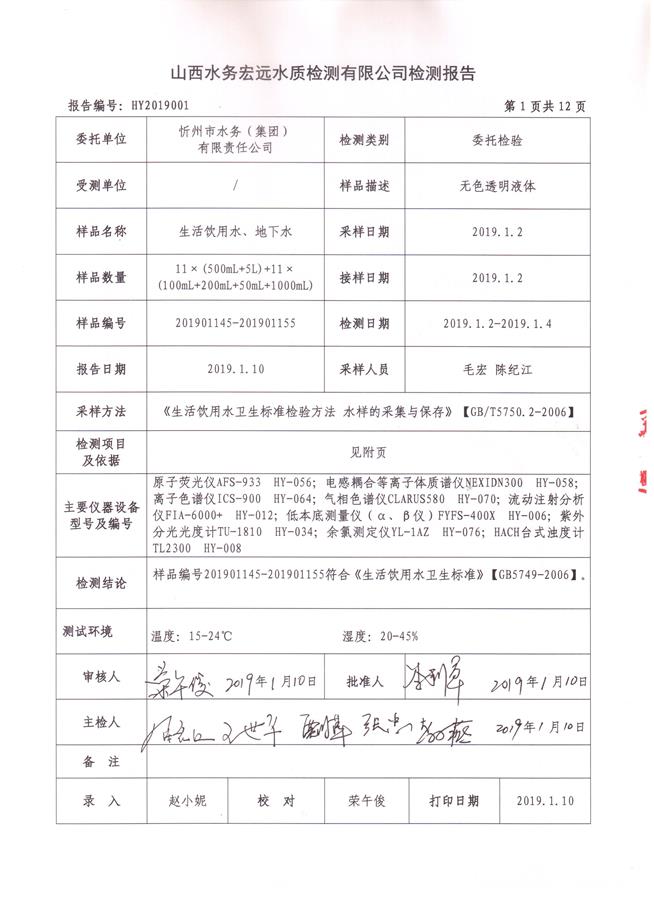 山西水务宏远水质检测有限公司检测报告
报告编号: HY2019001 第 1 页共 12 页
委托单位 忻州市水务（集团）有限责任公司 检测类别 委托检验
受测单位 / 样品描述 无色透明液体
样品名称 生活饮用水、地下水 采样日期 2019.1.2
样品数量 11×(500mL+5L)+11×(100mL+200mL+50mL+1000mL) 接样日期 2019.1.2
样品编号 201901145-201901155 检测日期 2019.1.2-2019.1.4
报告日期 2019.1.10 采样人员 毛宏 陈纪江
采样方法 《生活饮用水卫生标准检验方法 水样的采集与保存》【GB/T5750.2-2006】
检测项目及依据 见附页
主要仪器设备型号及编号
原子荧光仪AFS-933 HY-056; 电感耦合等离子体质谱仪NEXIDN300 HY-058;
离子色谱仪ICS-900 HY-064; 气相色谱仪CLARUS580 HY-070; 流动注射分析
仪FIA-6000+ HY-012; 低本底测量仪（α、β仪）FYFS-400X HY-006; 紫外
分光光度计TU-1810 HY-034; 余氯测定仪YL-1AZ HY-076; HACH台式浊度计
TL2300 HY-008
检测结论 样品编号201901145-201901155符合《生活饮用水卫生标准》【GB5749-2006】。
测试环境 温度: 15-24℃ 湿度: 20-45%
审核人 荣午俊 2019年1月10日 批准人 2019年1月10日
主检人 2019年1月10日
备 注
录 入 赵小妮 校 对 荣午俊 打印日期 2019.1.10